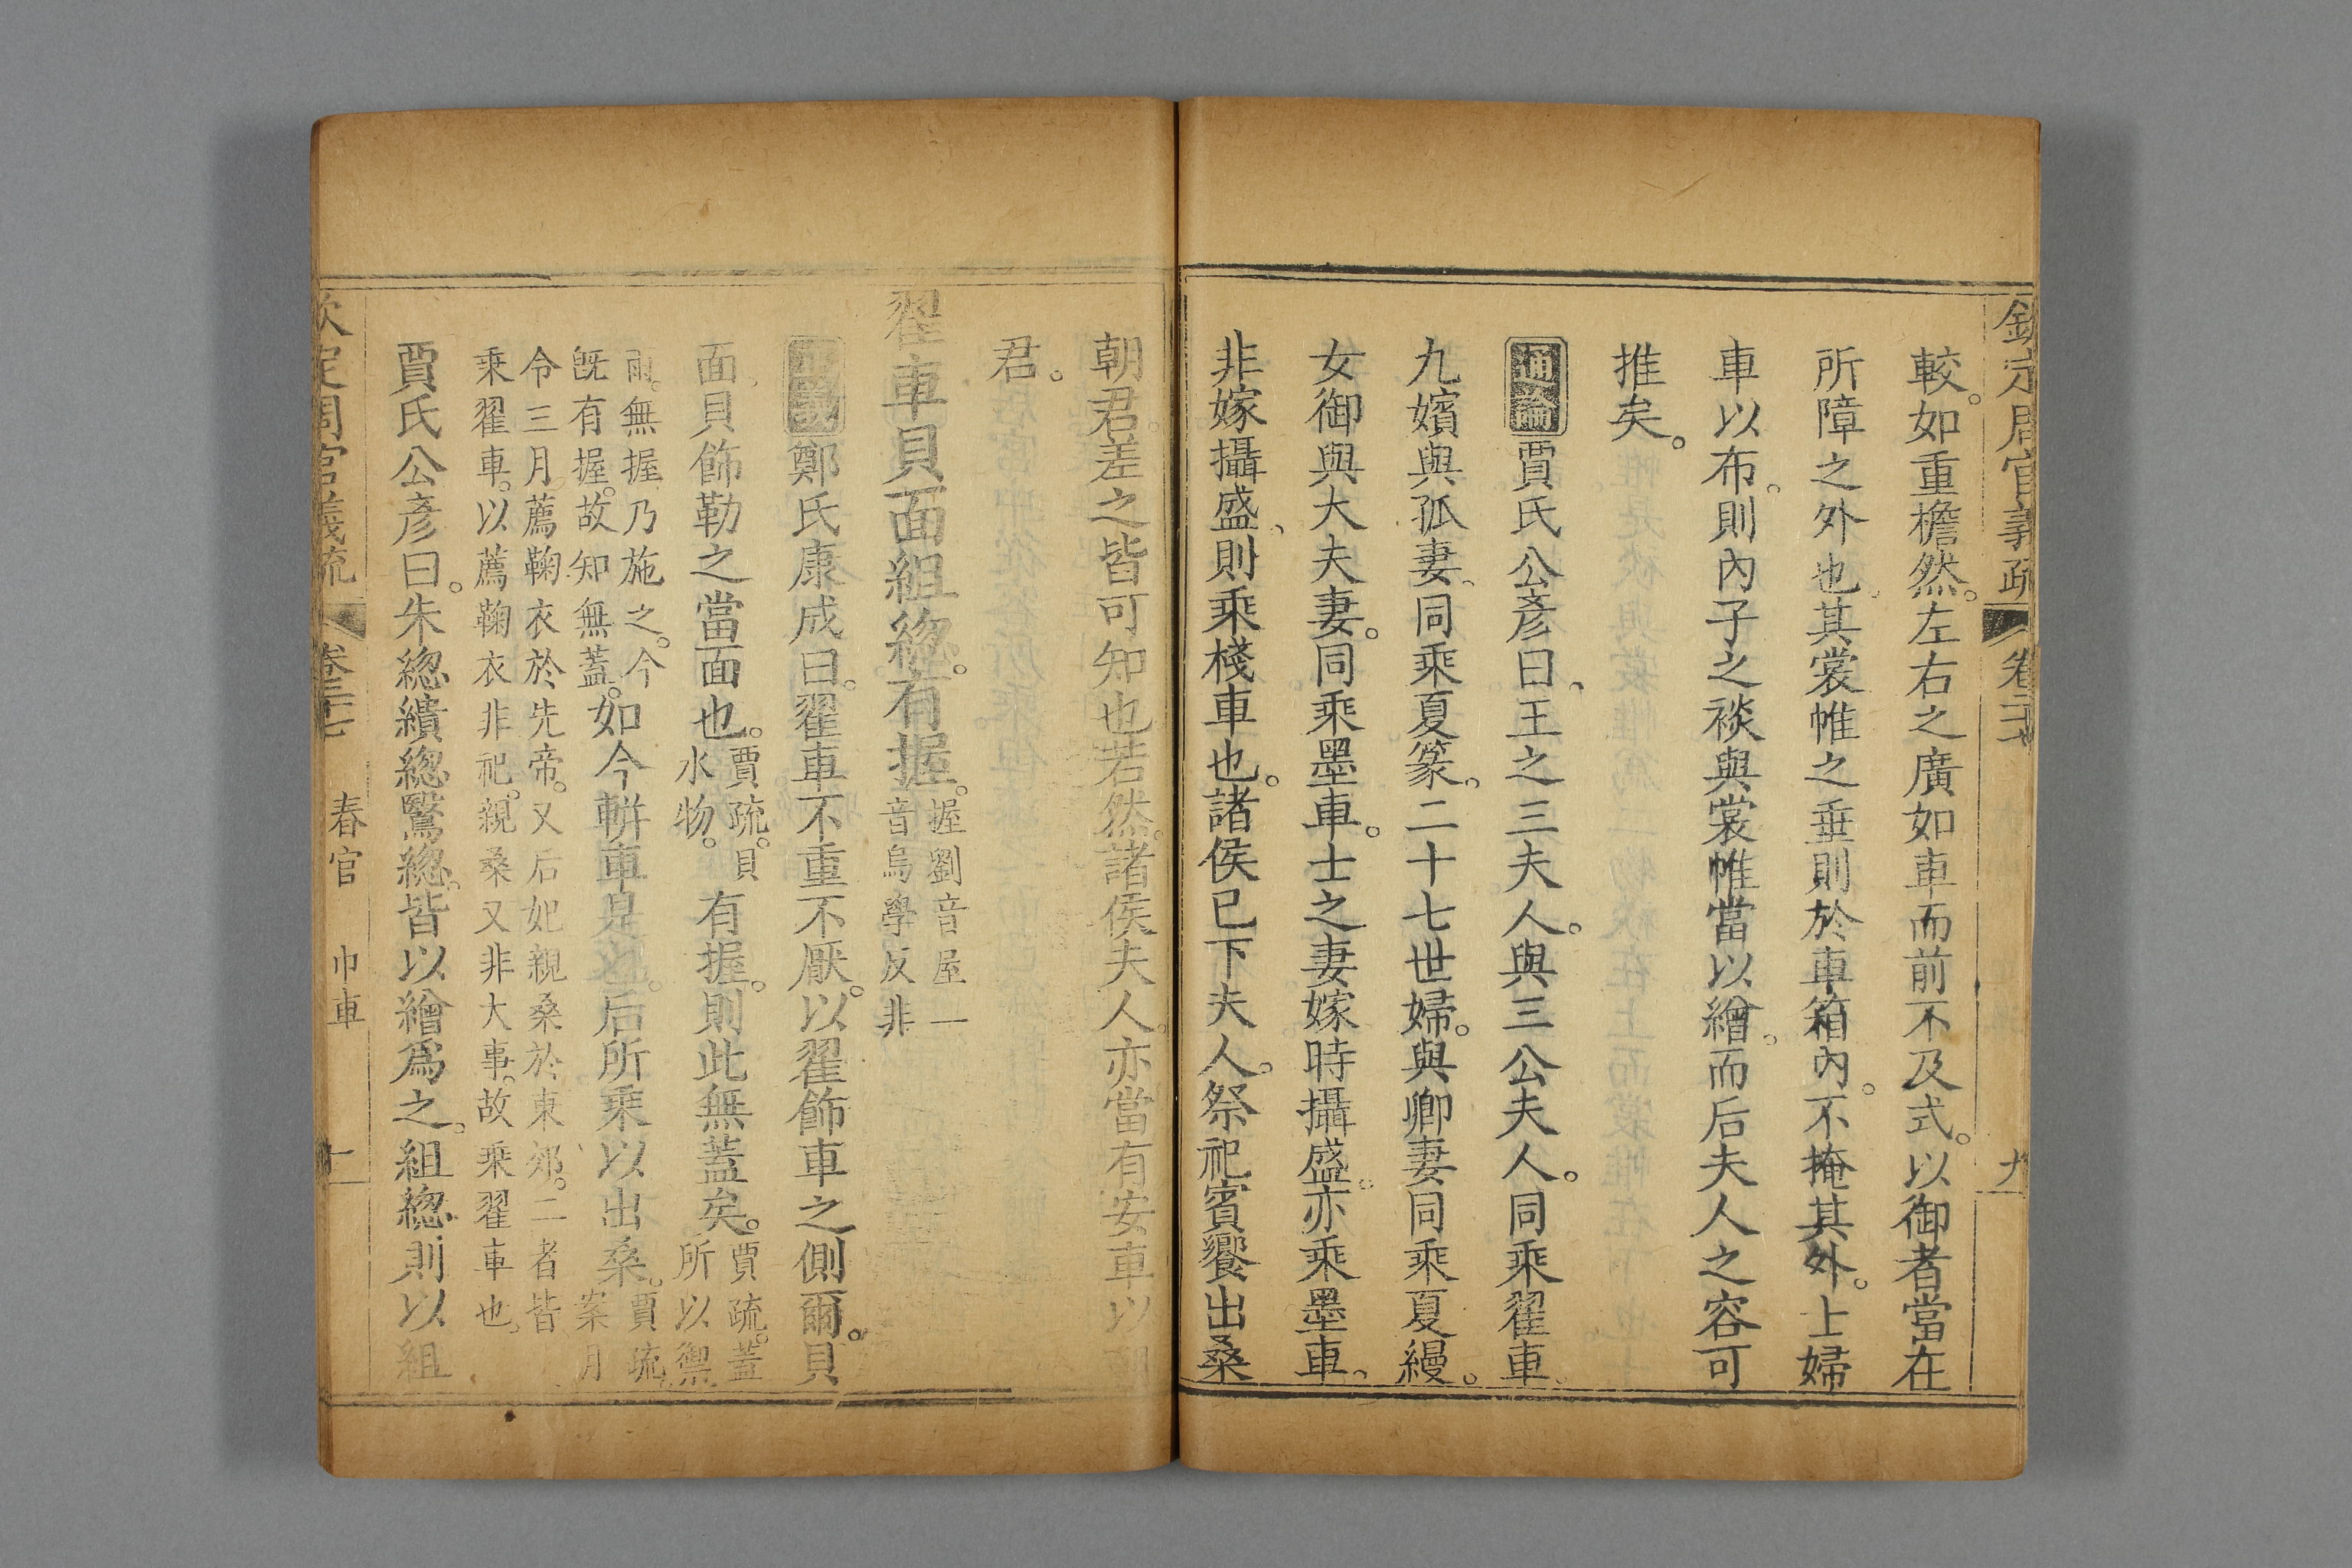 欽定周官義疏 卷二十七 九
較。如重檐然。左右之廣如車而前不及式。以御者當在
所障之外也。其裳帷之垂則於車箱內。不掩其外。上婦
車以布。則內子之裧與裳帷當以繒。而后夫人之容可
推矣。
通論 賈氏公彥曰、王之三夫人。與三公夫人。同乘翟車。
九嬪與孤妻。同乘夏篆。二十七世婦。與卿妻同乘夏縵。
女御與大夫妻。同乘墨車。士之妻嫁時攝盛。亦乘墨車。
非嫁攝盛、則乘棧車也。諸侯已下夫人。祭祀賓饗出桑
朝君。差之皆可知也若然。諸侯夫人。亦當有安車以
君。
翟車貝面組緫。有握。握劉音屋一
音烏學反非
鄭氏康成曰。翟車不重不厭。以翟飾車之側爾。貝
面貝飾勒之當面也。賈疏。貝
水物。有握。則此無蓋矣。賈疏。蓋
所以禦
雨。無握乃施之。今
旣有握。故知無蓋。如今輧車是也。后所乘以出桑。賈疏
案月
令三月。薦鞠衣於先帝。又后妃親桑於東郊。二者皆
乘翟車。以薦鞠衣非祀。親桑又非大事。故乘翟車也。
賈氏公彥曰。朱緫繢緫鷖緫。皆以繒爲之。組緫則以組
欽定周官義疏 卷二十七 春官 巾車